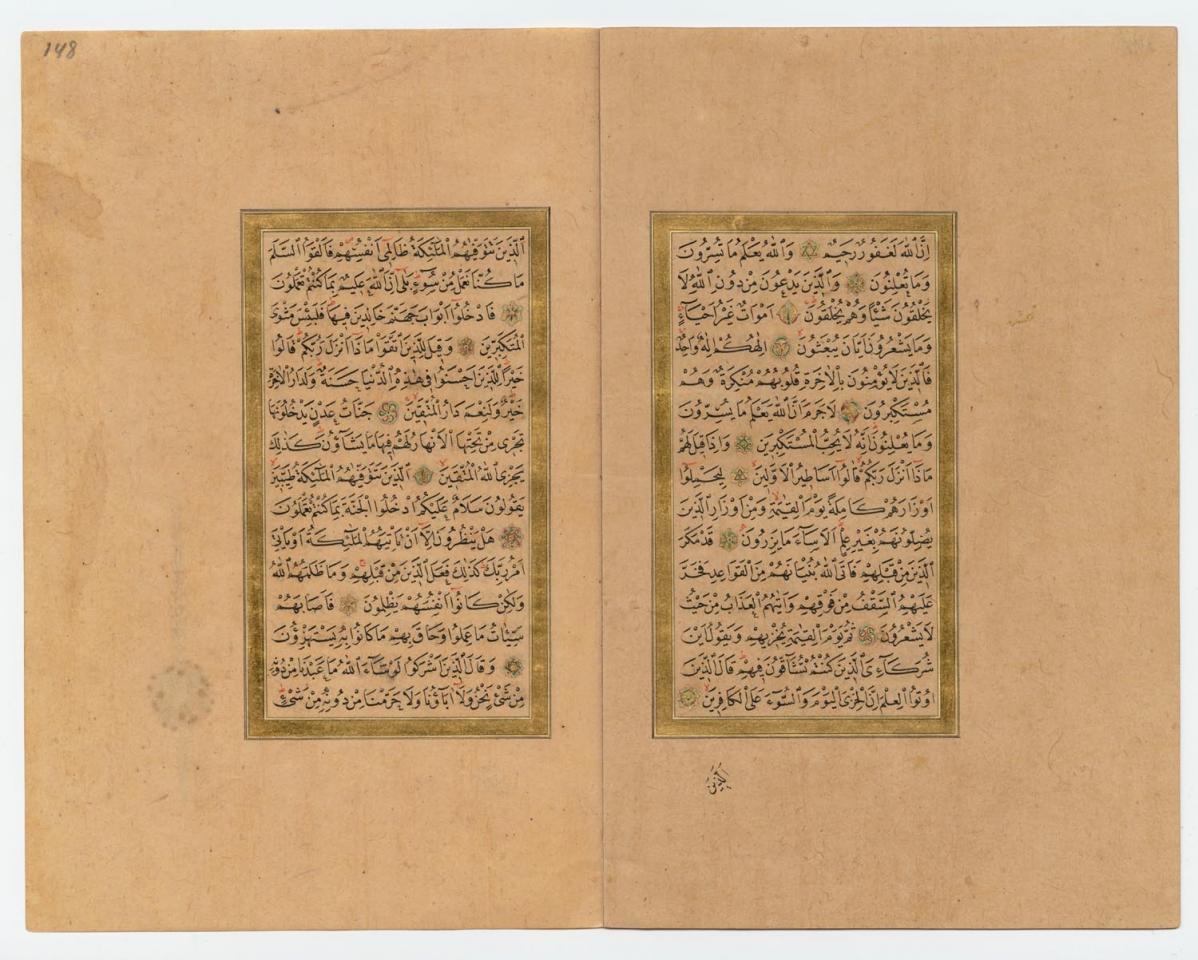 اِنَّ اللّٰهَ لَغَفُورٌ رَحِيمٌ وَاللّٰهُ يَعْلَمُ مَا تُسِرُّونَ
وَمَا تُعْلِنُونَ وَالَّذِينَ يَدْعُونَ مِنْ دُونِ اللّٰهِ لَا
يَخْلُقُونَ شَيْئًا وَهُمْ يُخْلَقُونَ اَمْوَاتٌ غَيْرُ اَحْيَاءٍ
وَمَا يَشْعُرُونَ اَيَّانَ يُبْعَثُونَ اِلٰهُكُمْ اِلٰهٌ وَاحِدٌ
فَالَّذِينَ لَا يُؤْمِنُونَ بِالْاٰخِرَةِ قُلُوبُهُمْ مُنْكِرَةٌ وَهُمْ
مُسْتَكْبِرُونَ لَا جَرَمَ اَنَّ اللّٰهَ يَعْلَمُ مَا يُسِرُّونَ
وَمَا يُعْلِنُونَ اِنَّهُ لَا يُحِبُّ الْمُسْتَكْبِرِينَ وَاِذَا قِيلَ لَهُمْ
مَاذَا اَنْزَلَ رَبُّكُمْ قَالُوا اَسَاطِيرُ الْاَوَّلِينَ لِيَحْمِلُوا
اَوْزَارَهُمْ كَامِلَةً يَوْمَ الْقِيٰمَةِ وَمِنْ اَوْزَارِ الَّذِينَ
يُضِلُّونَهُمْ بِغَيْرِ عِلْمٍ اَلَا سَاءَ مَا يَزِرُونَ قَدْ مَكَرَ
الَّذِينَ مِنْ قَبْلِهِمْ فَاَتَى اللّٰهُ بُنْيَانَهُمْ مِنَ الْقَوَاعِدِ فَخَرَّ
عَلَيْهِمُ السَّقْفُ مِنْ فَوْقِهِمْ وَاَتٰيهُمُ الْعَذَابُ مِنْ حَيْثُ
لَا يَشْعُرُونَ ثُمَّ يَوْمَ الْقِيٰمَةِ يُخْزِيهِمْ وَيَقُولُ اَيْنَ
شُرَكَاءِيَ الَّذِينَ كُنْتُمْ تُشَاقُّونَ فِيهِمْ قَالَ الَّذِينَ
اُوتُوا الْعِلْمَ اِنَّ الْخِزْيَ الْيَوْمَ وَالسُّوءَ عَلَى الْكَافِرِينَ
اَلَّذِينَ
148
اَلَّذِينَ تَتَوَفّٰيهُمُ الْمَلٰئِكَةُ ظَالِمِي اَنْفُسِهِمْ فَاَلْقَوُا السَّلَمَ
مَا كُنَّا نَعْمَلُ مِنْ سُوءٍ بَلٰى اِنَّ اللّٰهَ عَلِيمٌ بِمَا كُنْتُمْ تَعْمَلُونَ
فَادْخُلُوا اَبْوَابَ جَهَنَّمَ خَالِدِينَ فِيهَا فَلَبِئْسَ مَثْوَى
الْمُتَكَبِّرِينَ وَقِيلَ لِلَّذِينَ اتَّقَوْا مَاذَا اَنْزَلَ رَبُّكُمْ قَالُوا
خَيْرًا لِلَّذِينَ اَحْسَنُوا فِي هٰذِهِ الدُّنْيَا حَسَنَةٌ وَلَدَارُ الْاٰخِرَةِ
خَيْرٌ وَلَنِعْمَ دَارُ الْمُتَّقِينَ جَنَّاتُ عَدْنٍ يَدْخُلُونَهَا
تَجْرِي مِنْ تَحْتِهَا الْاَنْهَارُ لَهُمْ فِيهَا مَا يَشَاؤُنَ كَذٰلِكَ
يَجْزِي اللّٰهُ الْمُتَّقِينَ اَلَّذِينَ تَتَوَفّٰيهُمُ الْمَلٰئِكَةُ طَيِّبِينَ
يَقُولُونَ سَلَامٌ عَلَيْكُمُ ادْخُلُوا الْجَنَّةَ بِمَا كُنْتُمْ تَعْمَلُونَ
هَلْ يَنْظُرُونَ اِلَّا اَنْ تَاْتِيَهُمُ الْمَلٰئِكَةُ اَوْ يَاْتِيَ
اَمْرُ رَبِّكَ كَذٰلِكَ فَعَلَ الَّذِينَ مِنْ قَبْلِهِمْ وَمَا ظَلَمَهُمُ اللّٰهُ
وَلٰكِنْ كَانُوا اَنْفُسَهُمْ يَظْلِمُونَ فَاَصَابَهُمْ
سَيِّئَاتُ مَا عَمِلُوا وَحَاقَ بِهِمْ مَا كَانُوا بِهِ يَسْتَهْزِؤُنَ
وَقَالَ الَّذِينَ اَشْرَكُوا لَوْ شَاءَ اللّٰهُ مَا عَبَدْنَا مِنْ دُونِهِ
مِنْ شَيْءٍ نَحْنُ وَلَا اٰبَاؤُنَا وَلَا حَرَّمْنَا مِنْ دُونِهِ مِنْ شَيْءٍ